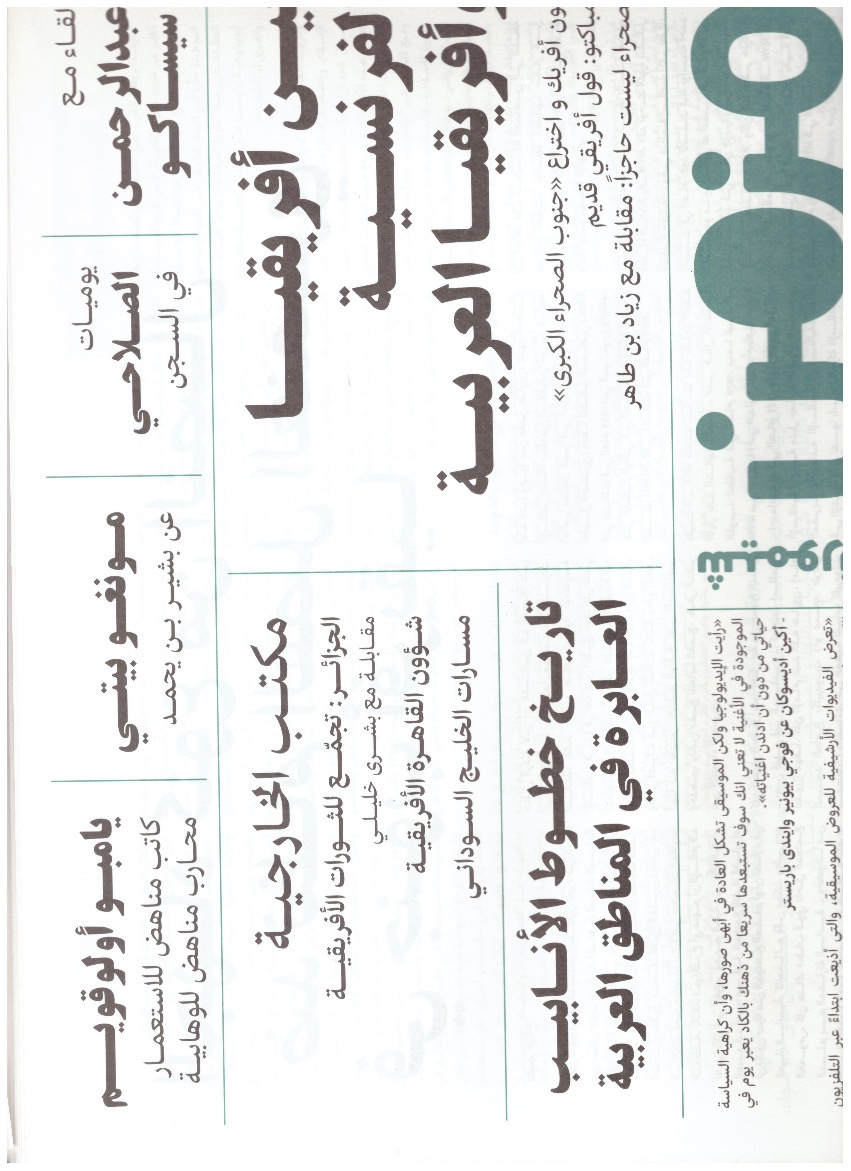 لقاء مع
عبدالرحمن
سيساكو
يوميات
الصلاحي
في السجن
مونغو بيتي
عن بشير بن يحمد
يامبو أولوقويم
كاتب مناهض للاستعمار
محارب مناهض للوهابية
أفريقيا
لفرنسية
أفريقيا العربية
ون أفريك و اختراع «جنوب الصحراء الكبرى»
مباكتو: قول أفريقي قديم
صحراء ليست حاجزاً: مقابلة مع زياد بن طاهر
مكتب الخارجية
الجزائر: تجمّع للثورات الأفريقية
مقابلة مع بشرى خليلي
شؤون القاهرة الأفريقية
مسارات الخليج السوداني
تاريخ خطوط الأنابيب
العابرة في المناطق العربية
«رأيت الإيديولوجيا ولكن الموسيقى تشكل العادة في أبهى صورها، وأن كراهية السياسة
الموجودة في الأغنية لا تعني انك سوف تستبعدها سريعا من ذهنك بالكاد يعبر يوم في
حياتي من دون أن أدندن اغنياته».
- أكين أديسوكان عن فوجي بيونير وايندي باريستر
«تعرض الفيديوات الأرشيفية للعروض الموسيقية، والتي أذيعت ابتداءً عبر التلفزيون